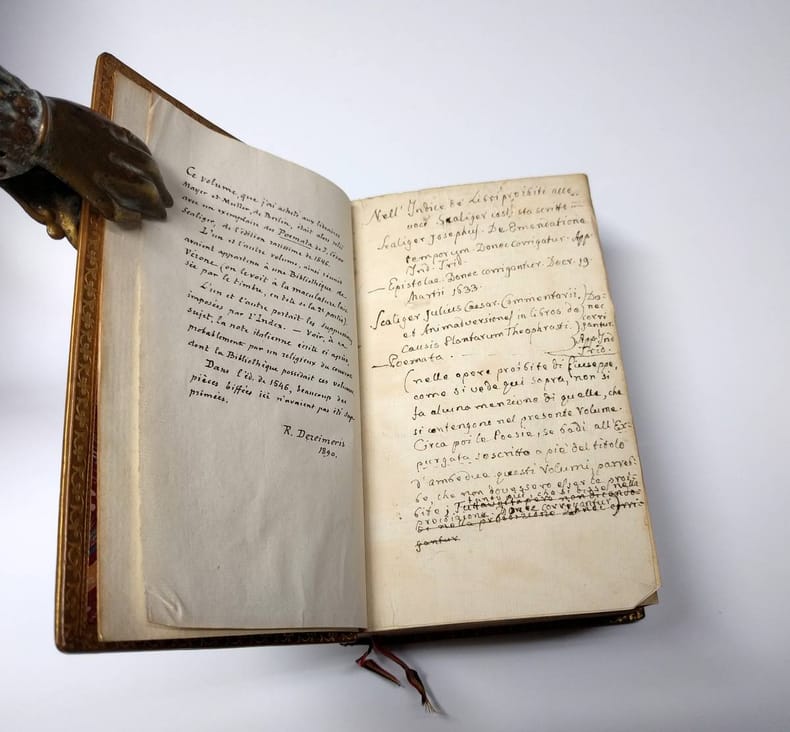 Ce volume, que j'ai acheté aux libraires
Mayer et Muller, de Berlin, était alors relié
avec un exemplaire des Poemata de J. César
Scaliger, de l'édition rarissime de 1546.
L'un et l'autre volume, ainsi réunis
avaient appartenu à une Bibliothèque de
Vérone (on le voit à la maculature lais-
sée par le timbre, en tête de la 2e partie).
L'un et l'autre portait les suppressions
imposées par l'Index. — Voir, à ce
sujet, la note italienne écrite ci après
probablement par un religieux du couvent
dont la Bibliothèque possédait ces volumes.
Dans l'éd. de 1546, beaucoup des
pièces biffées ici n'avaient pas été sup-
primées.
R. Dezeimeris
1890.
Nell' Indice de' Libri proibiti alla
voce Scaliger così sta scritto
Scaliger Josephus. De Emendatione
temporum. Donec corrigatur. App.
Ind. Trid.
— Epistolae. Donec corrigantur. Decr. 19.
Martii 1633.
Scaliger Julius Caesar. Commentarii, Do-
et Animalversiones in libros de nec
Causis Plantarum Theophrasti. corri
gantur.
— Poemata. App. Ind.
Trid.
(nelle opere proibite di Giuseppe,
come si vede qui sopra, non si
fa alcuna menzione di quelle, che
si contengono nel presente Volume.
Circa poi le Poesie, se badi all' Ex-
purgata soscritto a piè del titolo
d'ambedue questi Volumi, parreb-
be, che non dovessero esser ce proi-
bite;
proibizione. Donec corrigantur.
si nella proibizione donec corri-
gantur